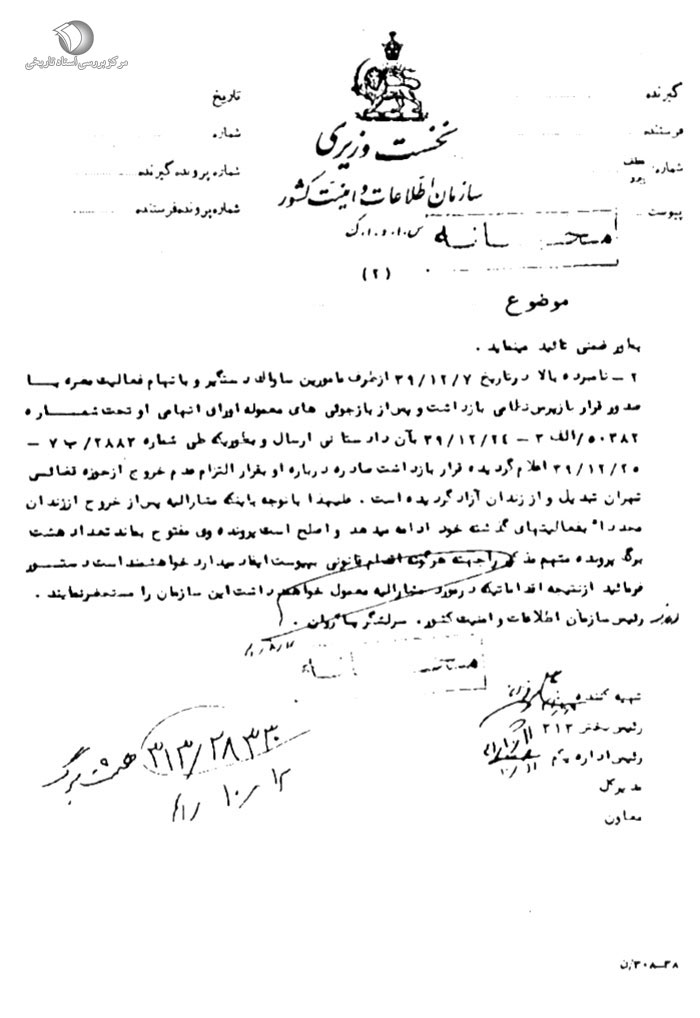 مرکز بررسی اسناد تاریخی
نخست وزیری
سازمان اطلاعات و امنیت کشور
س.ا.و.ا.ک
گیرنده
فرستنده
شماره: عطف پیرو
پیوست
تاریخ
شماره
شماره پرونده گیرنده
شماره پرونده فرستنده
محرمانه
(۲)
موضوع
بطور ضمنی تائید مینماید .
۲ - نامبرده بالا در تاریخ ۳۹/۱۲/۷ از طرف مامورین ساواک دستگیر و باتهام فعالیت مضره با
صدور قرار بازپرس نظامی بازداشت و پس از بازجوئی های معموله اوراق اتهامی او تحت شماره
۵۰۳۸۲/الف ۳ - ۳۹/۱۲/۲۴ بآن دادستانی ارسال و بطوریکه طی شماره ۲۸۸۳/ب ۷ -
۳۹/۱۲/۲۵ اعلام گردیده قرار بازداشت صادره درباره او بقرار التزام عدم خروج از حوزه قضائی
تهران تبدیل و از زندان آزاد گردیده است . علیهذا با توجه باینکه مشارالیه پس از خروج از زندان
مجددا" بفعالیتهای گذشته خود ادامه میدهد و اصلح است پرونده وی مفتوح بماند تعداد هشت
برگ پرونده متهم مذکور را جهت هرگونه اقدام قانونی بپیوست ایفاد میدارد خواهشمند است دستور
فرمائید از نتیجه اقداماتیکه در مورد مشارالیه معمول خواهند داشت این سازمان را مستحضر نمایند .
رئیس سازمان اطلاعات و امنیت کشور . سرلشگر پاکروان .
تهیه کننده
رئیس بخش ۳۱۲
رئیس اداره یکم
مدیر کل
معاون
۳۱۳/۲۸۳۳۰
هشت برگ
۴۱/۱۰/۱۲
۳۸-۳۰۸/ن